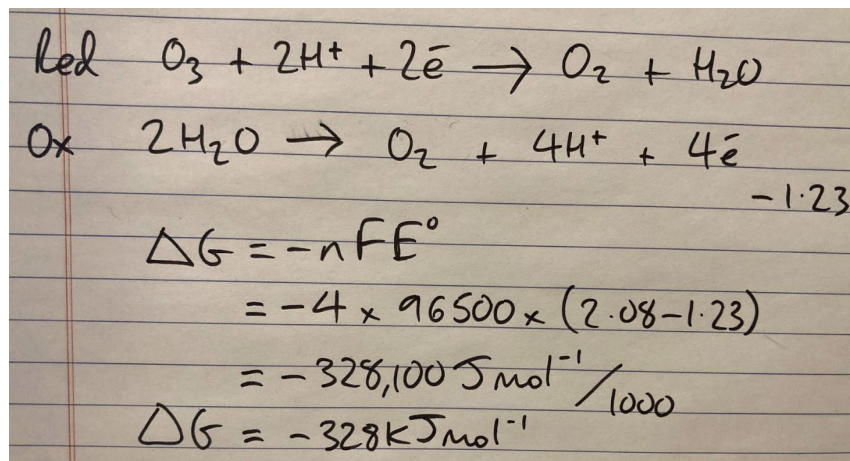 Red O₃ + 2H⁺ + 2ē → O₂ + H₂O
Ox 2H₂O → O₂ + 4H⁺ + 4ē
-1.23
ΔG = -nFE°
= -4 × 96500 × (2.08-1.23)
= -328,100 J mol⁻¹/1000
ΔG = -328kJmol⁻¹